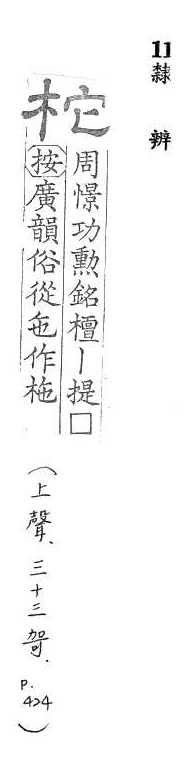 11 隸辨
柁
周憬功勳銘檀丨提□
按廣韻俗從㐌作柂
（上聲．三十三哿．P.424）